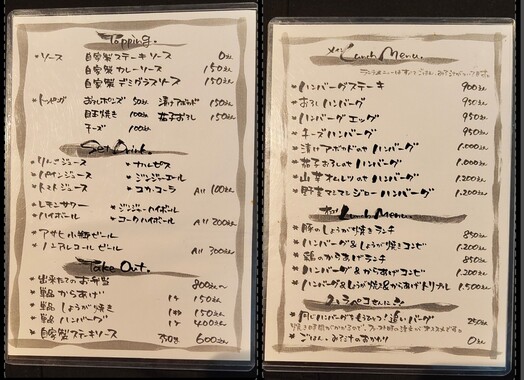 Topping.
・ソース 自家製ステーキソース 0えん
自家製カレーソース 150えん
自家製デミグラスソース 150えん
・トッピング おろしポンズ 50えん 漬けアボカド 150えん
目玉焼き 100えん 茄子おろし 150えん
チーズ 100えん
Set Drink.
* りんごジュース * カルピス
* パインジュース * ジンジーエール
* トマトジュース * コカ・コーラ All 100えん
* レモンサワー * ジンジーハイボール
* ハイボール * コークハイボール All 200えん
* アサヒ小瓶ビール
* ノンアルコールビール All 300えん
Take Out.
* 出来たてのお弁当 800えん〜
* 単品からあげ 1ケ 150えん
* 単品しょうが焼き 150えん
* 単品ハンバーグ 1ケ 400えん
* 自家製ステーキソース 600えん
Lunch Menu.
* ハンバーグステーキ 900えん
* おろしハンバーグ 950えん
* ハンバーグエッグ 950えん
* チーズハンバーグ 950えん
* 漬けアボカドのせハンバーグ 1.000えん
* 茄子おろしのせハンバーグ 1.000えん
* 山芋オムレツのせハンバーグ 1.200えん
* 野菜マシマシジローハンバーグ 1.200えん
Lunch Menu.
* 豚のしょうが焼きランチ 850えん
* ハンバーグ&しょうが焼きコンビ 1.200えん
* 鶏のからあげランチ 850えん
* ハンバーグ&からあげコンビ 1.200えん
* ハンバーグ&しょうが焼き&からあげトリプル 1.500えん
ハラペコさんに
* 同じハンバーグをもう1つ!追いバーグ 250えん
* ごはん、みそ汁のおかわり 0えん